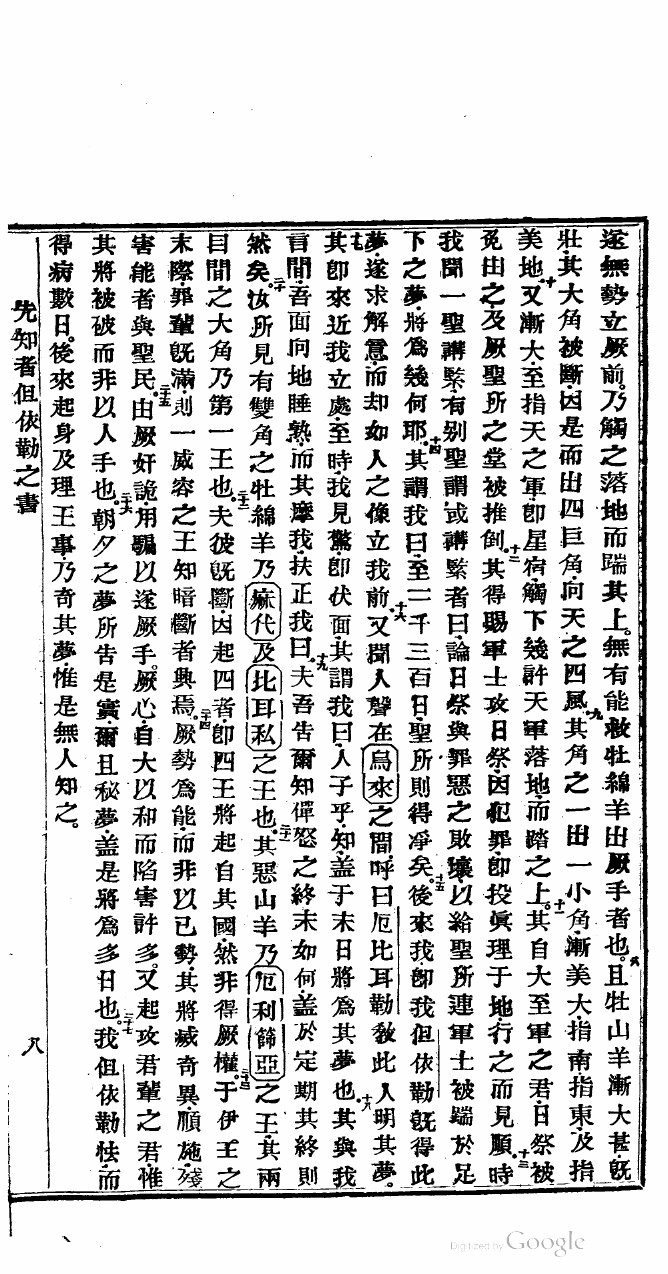 遂無勢立厥前。乃觸之落地而踹其上。無有能救牡綿羊出厥手者也。八且牡山羊漸大甚。旣
壯。其大角被斷。因是而出四巨角。向天之四風。九其角之一出一小角。漸美大。指南。指東。及指
美地。十又漸大至指天之軍。卽星宿。觸下幾許天軍落地。而踏之上。十一其自大至軍之君。日祭被
免由之。及厥聖所之堂被推倒。十二其得賜軍士攻日祭。因犯罪。卽投眞理于地。行之而見順。十三時
我聞一聖講繄。有别聖謂或講繄者曰。論日祭與罪惡之敗壞。以給聖所連軍士被踹於足
下之夢。將爲幾何耶。十四其謂我曰。至二千三百日。聖所則得凈矣。十五後來我卽我但依勒旣得此
夢。遂求解意。而却如人之像立我前。十六又聞人聲在烏來之間。呼曰。厄比耳勒敎此人明其夢。
十七其卽來近我立處。至時我見驚。卽伏面。其謂我曰。人子乎。知盖于末日將爲其夢也。十八其與我
言間。吾面向地睡熟。而其摩我。扶正我曰。十九夫吾告爾知僤怒之終末如何。盖於定期其終則
然矣。二十汝所見有雙角之牡綿羊。乃麻代及比耳私之王也。二十一其惡山羊乃厄利篩亞之王。其兩
目間之大角乃第一王也。二十二夫彼旣斷。因起四者。卽四王將起自其國。然非得厥權。二十三于伊王之
末際。罪輩旣滿。則一威容之王知暗斷者興焉。二十四厥勢爲能。而非以已勢。其將烕奇異。順施。殘
害能者與聖民。二十五由厥奸詭。用騙以遂厥手。厥心自大。以和而陷害許多。又起攻君輩之君。惟
其將被破而非以人手也。二十六朝夕之夢所告是實。爾且秘夢。盖是將爲多日也。二十七我但依勒怯。而
得病數日。後來起身及理王事。乃奇其夢。惟是無人知之。
先知者但依勒之書
八
Digitized by Google